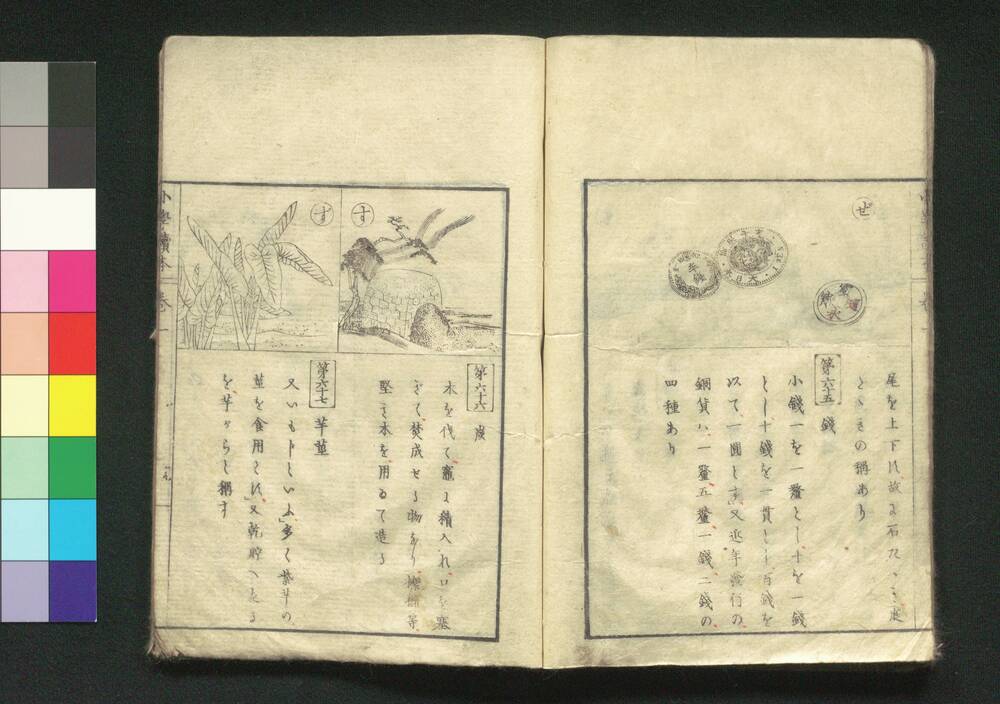 ぜ
尾を上下す故に石たゝき庭
たゝきの稱あり
第六十五 錢
小錢一を一釐とし十を一錢
とし十錢を一貫とし百錢を
以て一圓と言又近年發行の
銅貨ハ、一釐五釐一錢二錢の
四種あり
す
第六十六 炭
木を伐て竈に積入れ口を塞
ぎて焚成せる物なり 等
堅き木を用ゐて造る
ず
第六十七 芋莖
又いもじといふ多く紫芋の
莖を食用とす又乾貯へたる
を芋がらと稱す
小學讀本 卷一